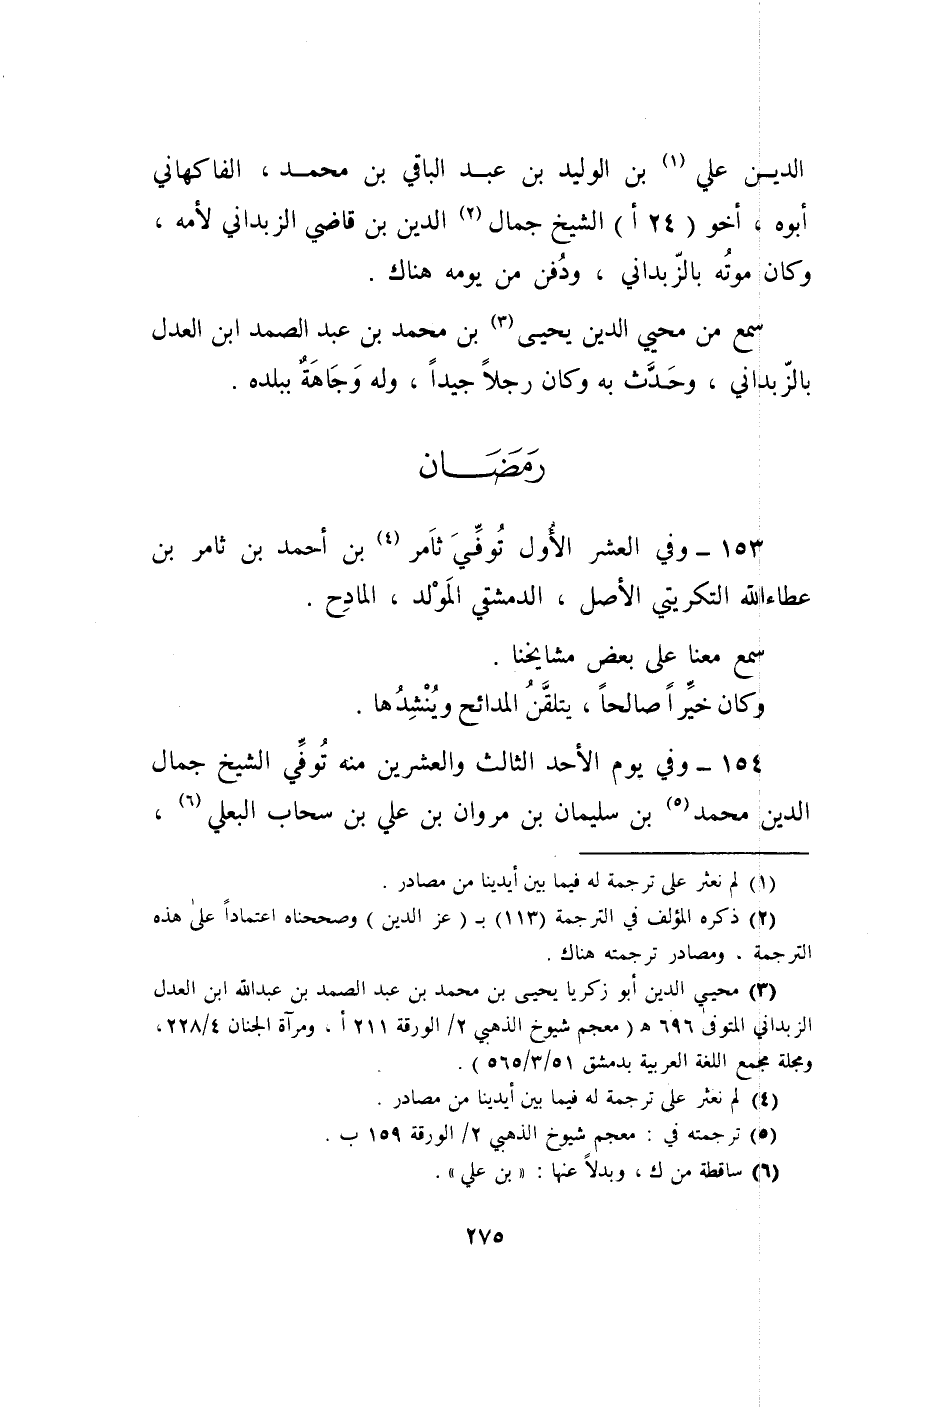 الديـن علي (١) بن الوليد بن عبـد الباقي بن محمـد ، الفاكهاني
أبوه ، أخو ( ٢٤ أ ) الشيخ جمال (٢) الدين بن قاضي الزبداني لأمه ،
وكان موتُه بالزّبداني ، ودُفن من يومه هناك .
سمع من محيي الدين يحيـى (٣) بن محمد بن عبد الصمد ابن العدل
بالزّبداني ، وحَدَّث به وكان رجلاً جيداً ، وله وَجَاهَةٌ ببلده .
رَمَضَـــان
١٥٣ ــ وفي العشر الأُول تُوفِّيَ ثاَمر (٤) بن أحمد بن ثامر بن
عطاءالله التكريتي الأصل ، الدمشقي المَوْلد ، المادِح .
سمع معنا على بعض مشايخنا .
وكان خيِّراً صالحاً ، يتلقَّنُ المدائح ويُنْشِدُها .
١٥٤ ــ وفي يوم الأحد الثالث والعشرين منه تُوفِّي الشيخ جمال
الدين محمد (٥) بن سليمان بن مروان بن علي بن سحاب البعلي (٦) ،
(١) لم نعثر على ترجمة له فيما بين أيدينا من مصادر .
(٢) ذكره المؤلف في الترجمة (١١٣) بـ ( عز الدين ) وصححناه اعتماداً على هذه
الترجمة . ومصادر ترجمته هناك .
(٣) محيـي الدين أبو زكريا يحيـى بن محمد بن عبد الصمد بن عبدالله ابن العدل
الزبداني المتوفى ٦٩٦ ه ( معجم شيوخ الذهبي ٢/ الورقة ٢١١ أ ، ومرآة الجنان ٢٢٨/٤ ،
ومجلة مجمع اللغة العربية بدمشق ٥٦٥/٣/٥١ ) .
(٤) لم نعثر على ترجمة له فيما بين أيدينا من مصادر .
(٥) ترجمته في : معجم شيوخ الذهبي ٢/ الورقة ١٥٩ ب .
(٦) ساقطة من ك ، وبدلاً عنها : « بن علي » .
٢٧٥